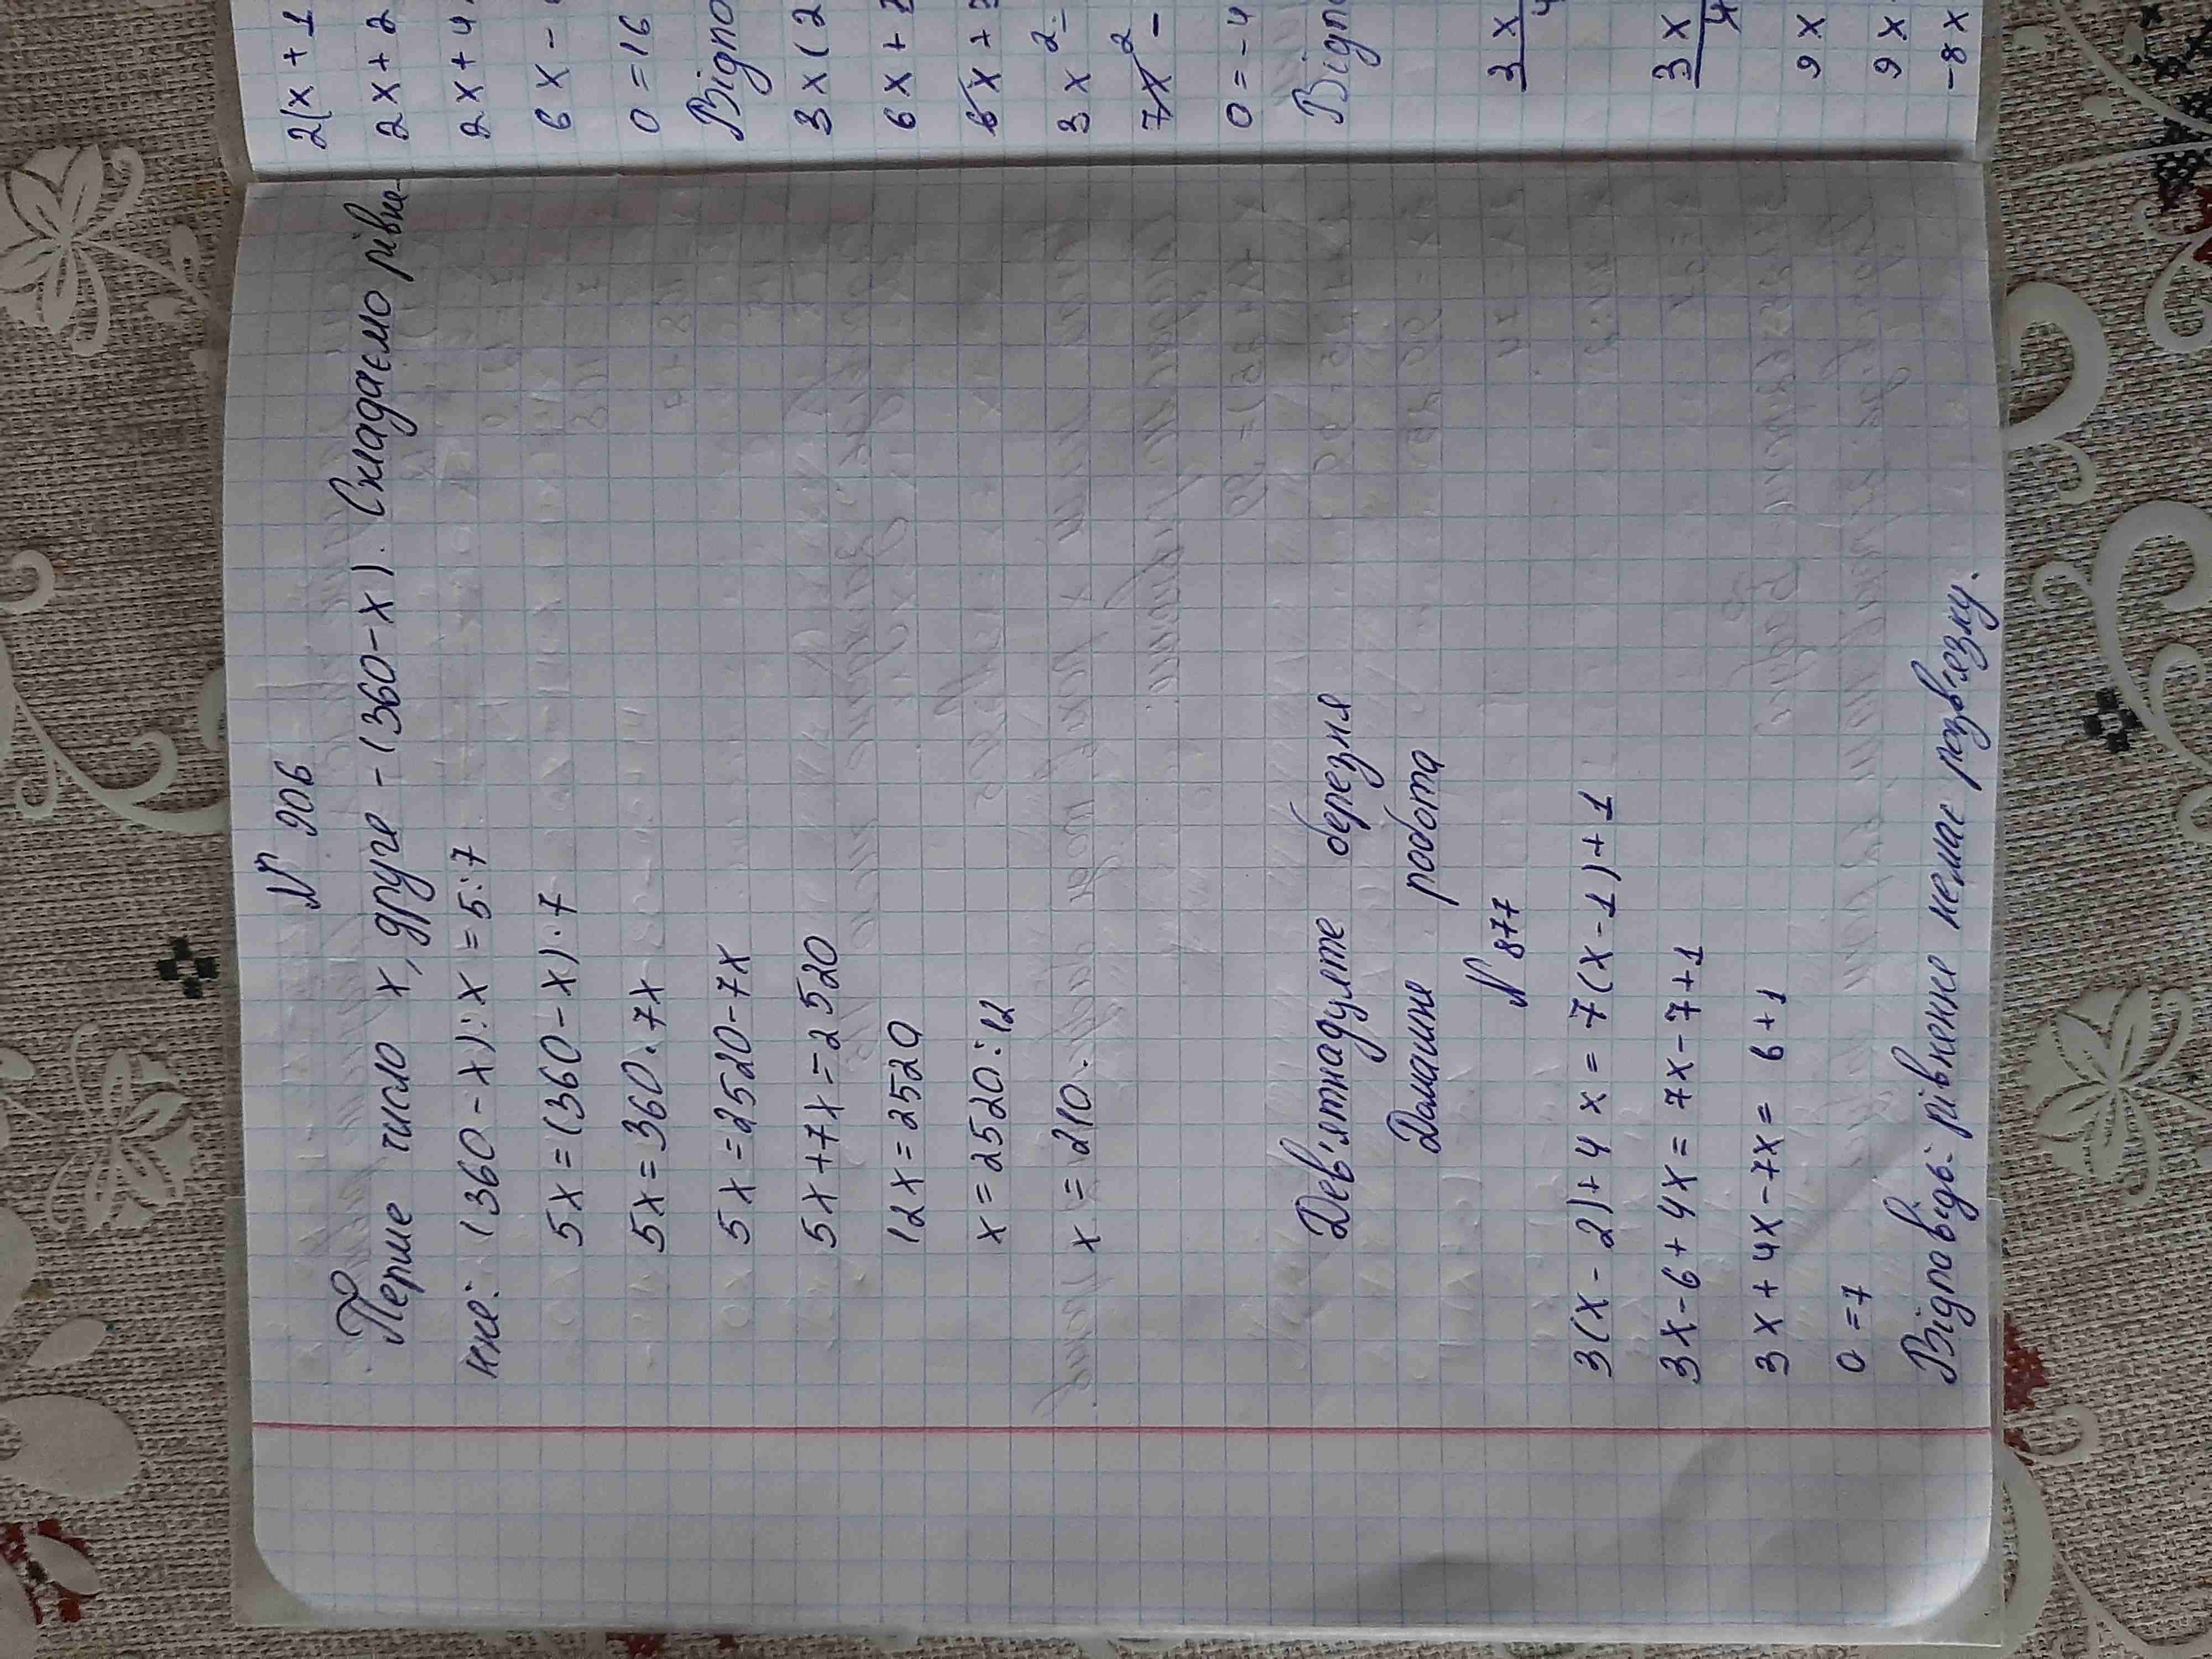 N 906
Перше число x, друге - (360-x). Складаємо рівня-
ння: (360-x):x=5:7
5x=(360-x)·7
5x=360·7x
5x=2520-7x
5x+7x=2520
12x=2520
x=2520:12
x=210.
Дев'ятнадцяте березня
Домашня робота
N 877
3(x-2)+4x=7(x-1)+1
3x-6+4x=7x-7+1
3x+4x-7x=6+1
0=7
Відповідь: рівняння немає розв'язку.
2(x+1
2x+2
2x+4
6x-
0=16
Відпо
3x(2
6x+
6x+
3x²-
7x²-
0=-4
Відпо
3x
4
3x
4
9x
9x
-8x